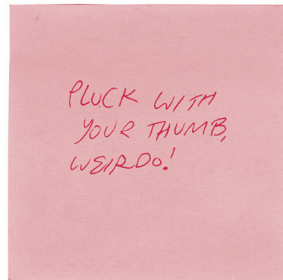 PLUCK WITH
YOUR THUMB,
WEIRDO!